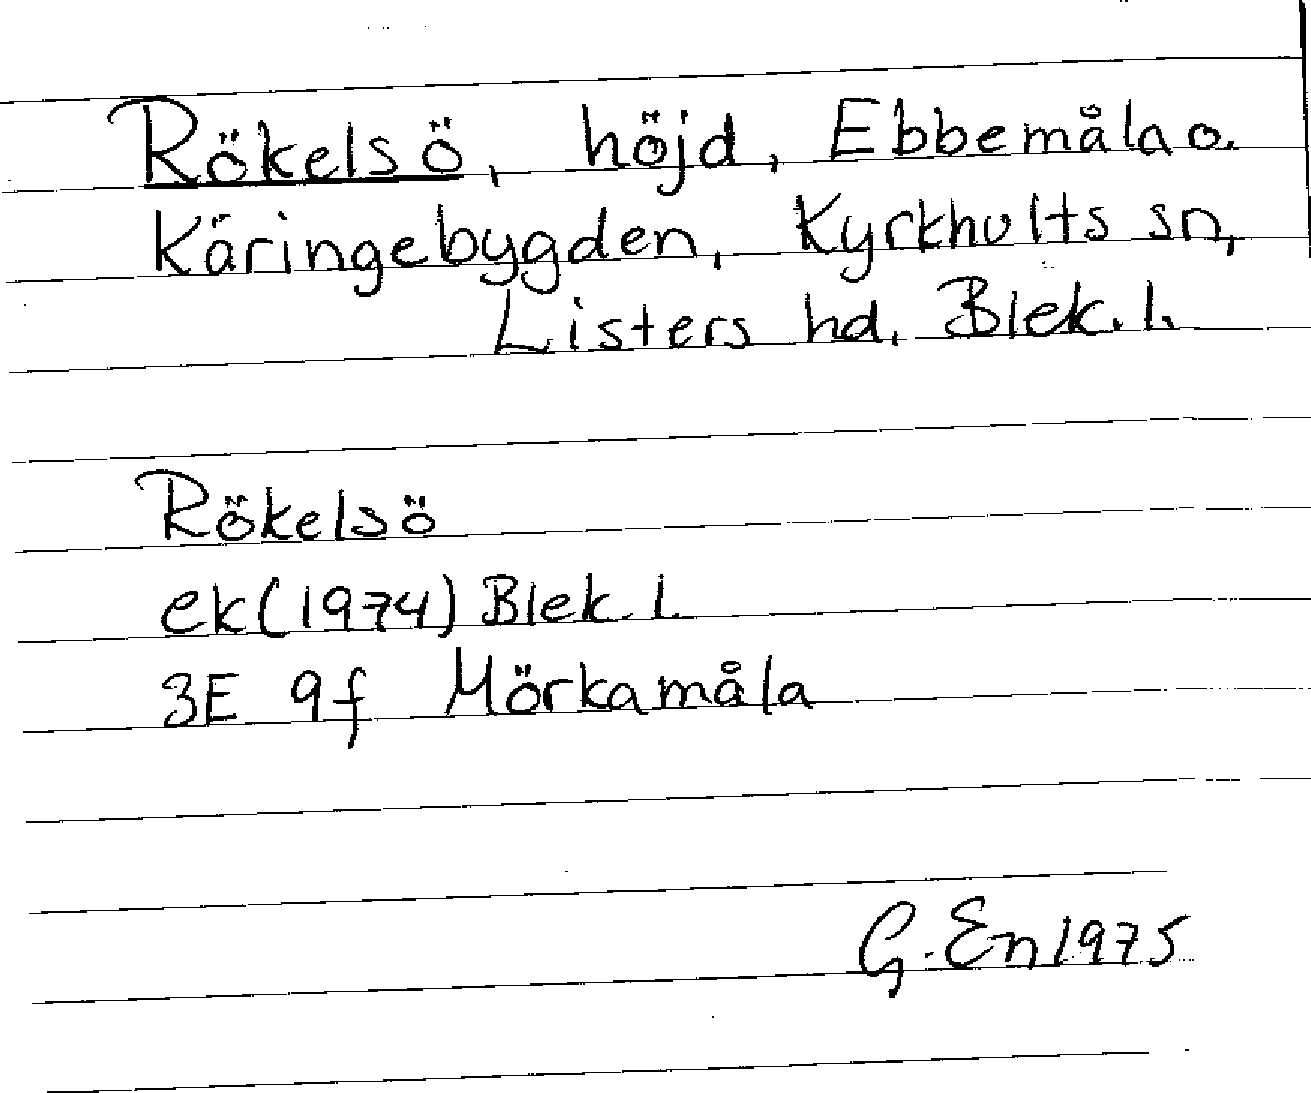 Rökelsö, höjd, Ebbemåla o.
Käringebygden, Kyrkhults sn,
Listers hd. Blek. l.
Rökelsö
ek (1974) Blek. l.
3E 9f Mörkamåla
G. En 1975